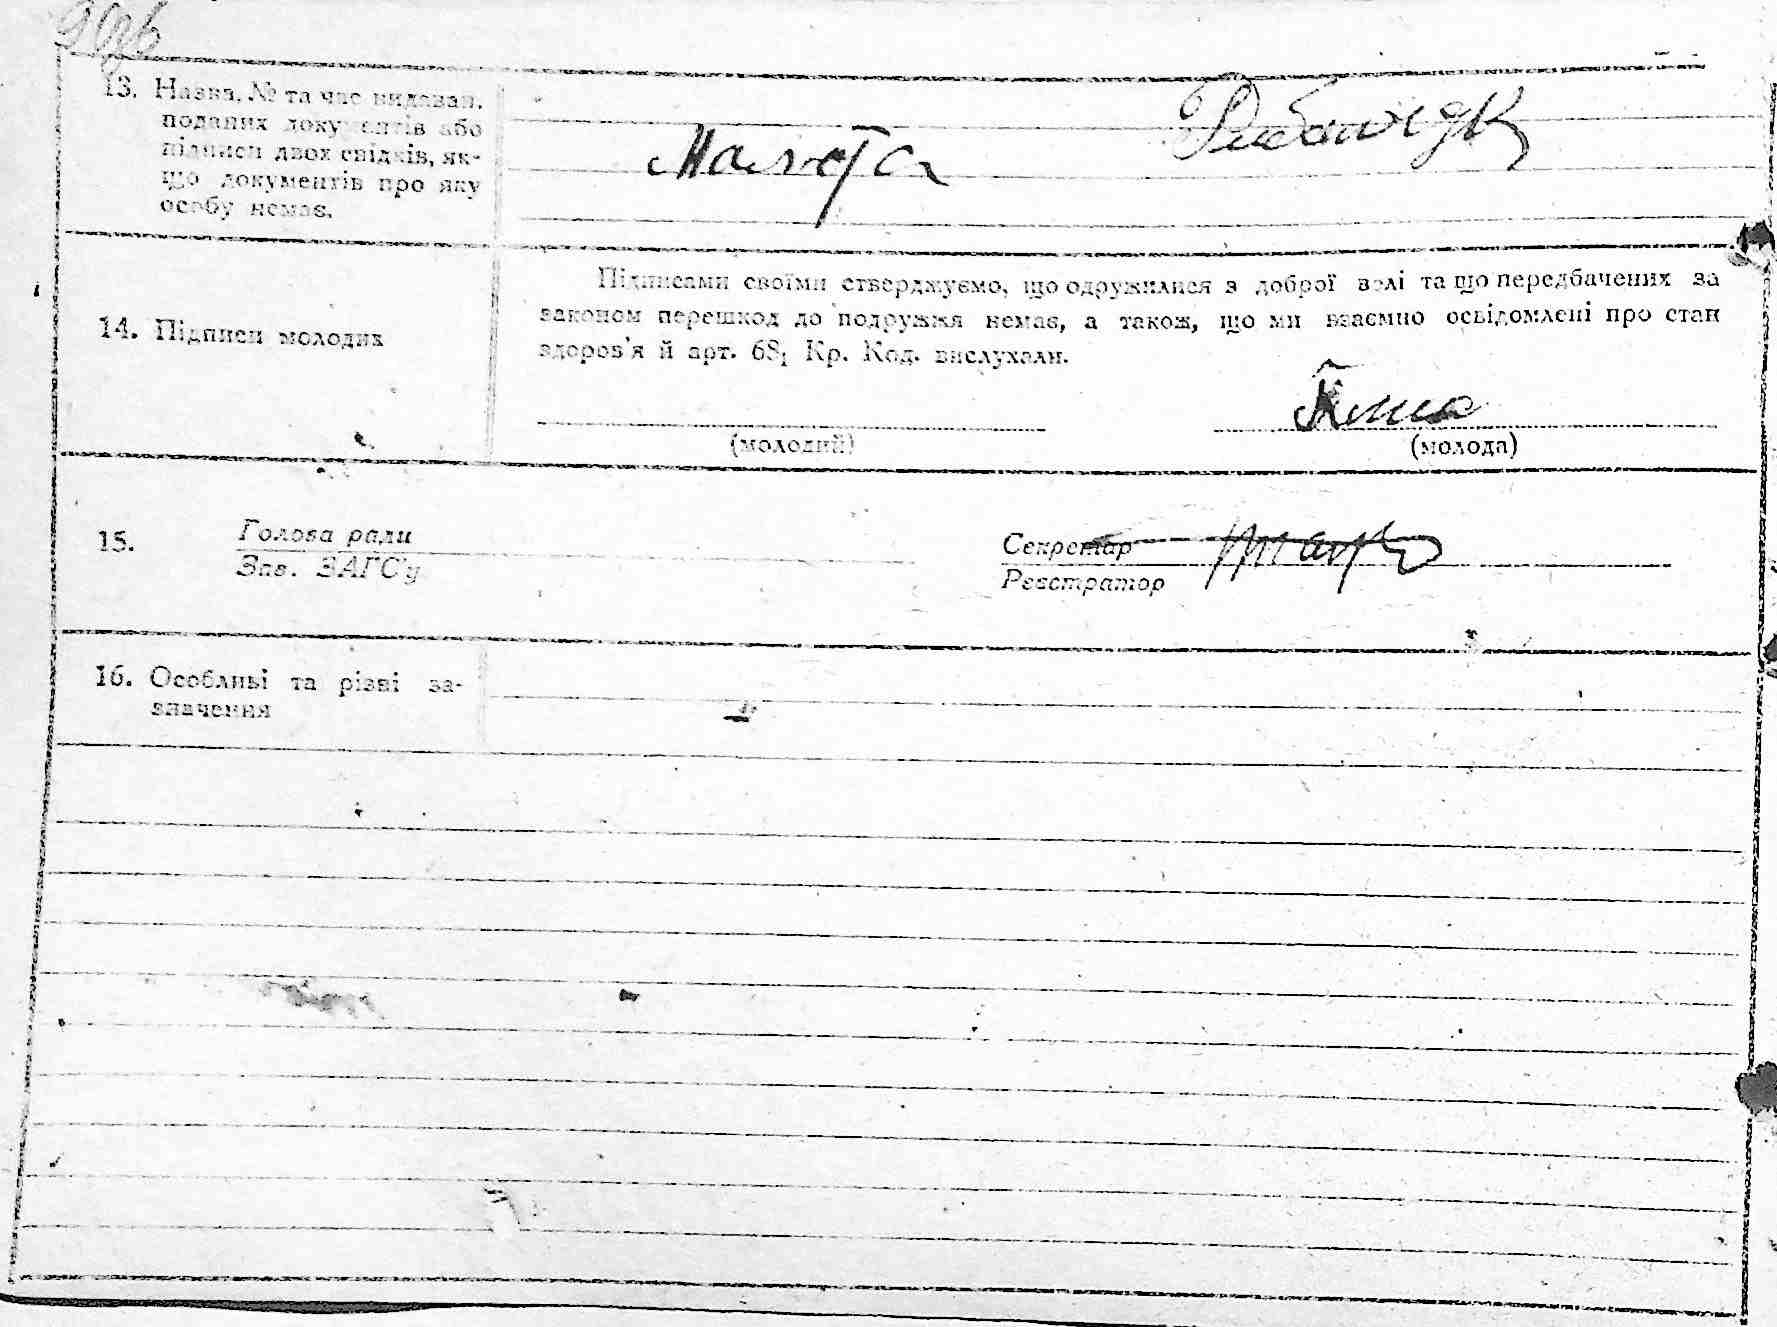 90зв
13. Назва, № та час видаван.
поданих документів або
підписи двох свідків, як-
що документів про яку
особу немає.
14. Підписи молодих
Підписами своїми стверджуємо, що одружилися з доброї волі та що передбачених за
законом перешкод до подружжя немає, а також, що ми взаємно освідомлені про стан
здоров'я й арт. 68₁ Кр. Код. вислухали.
(молодий)
(молода)
15. Голова ради
Зав. ЗАГС'у
Секретар
Реєстратор
16. Особливі та різні за-
значення